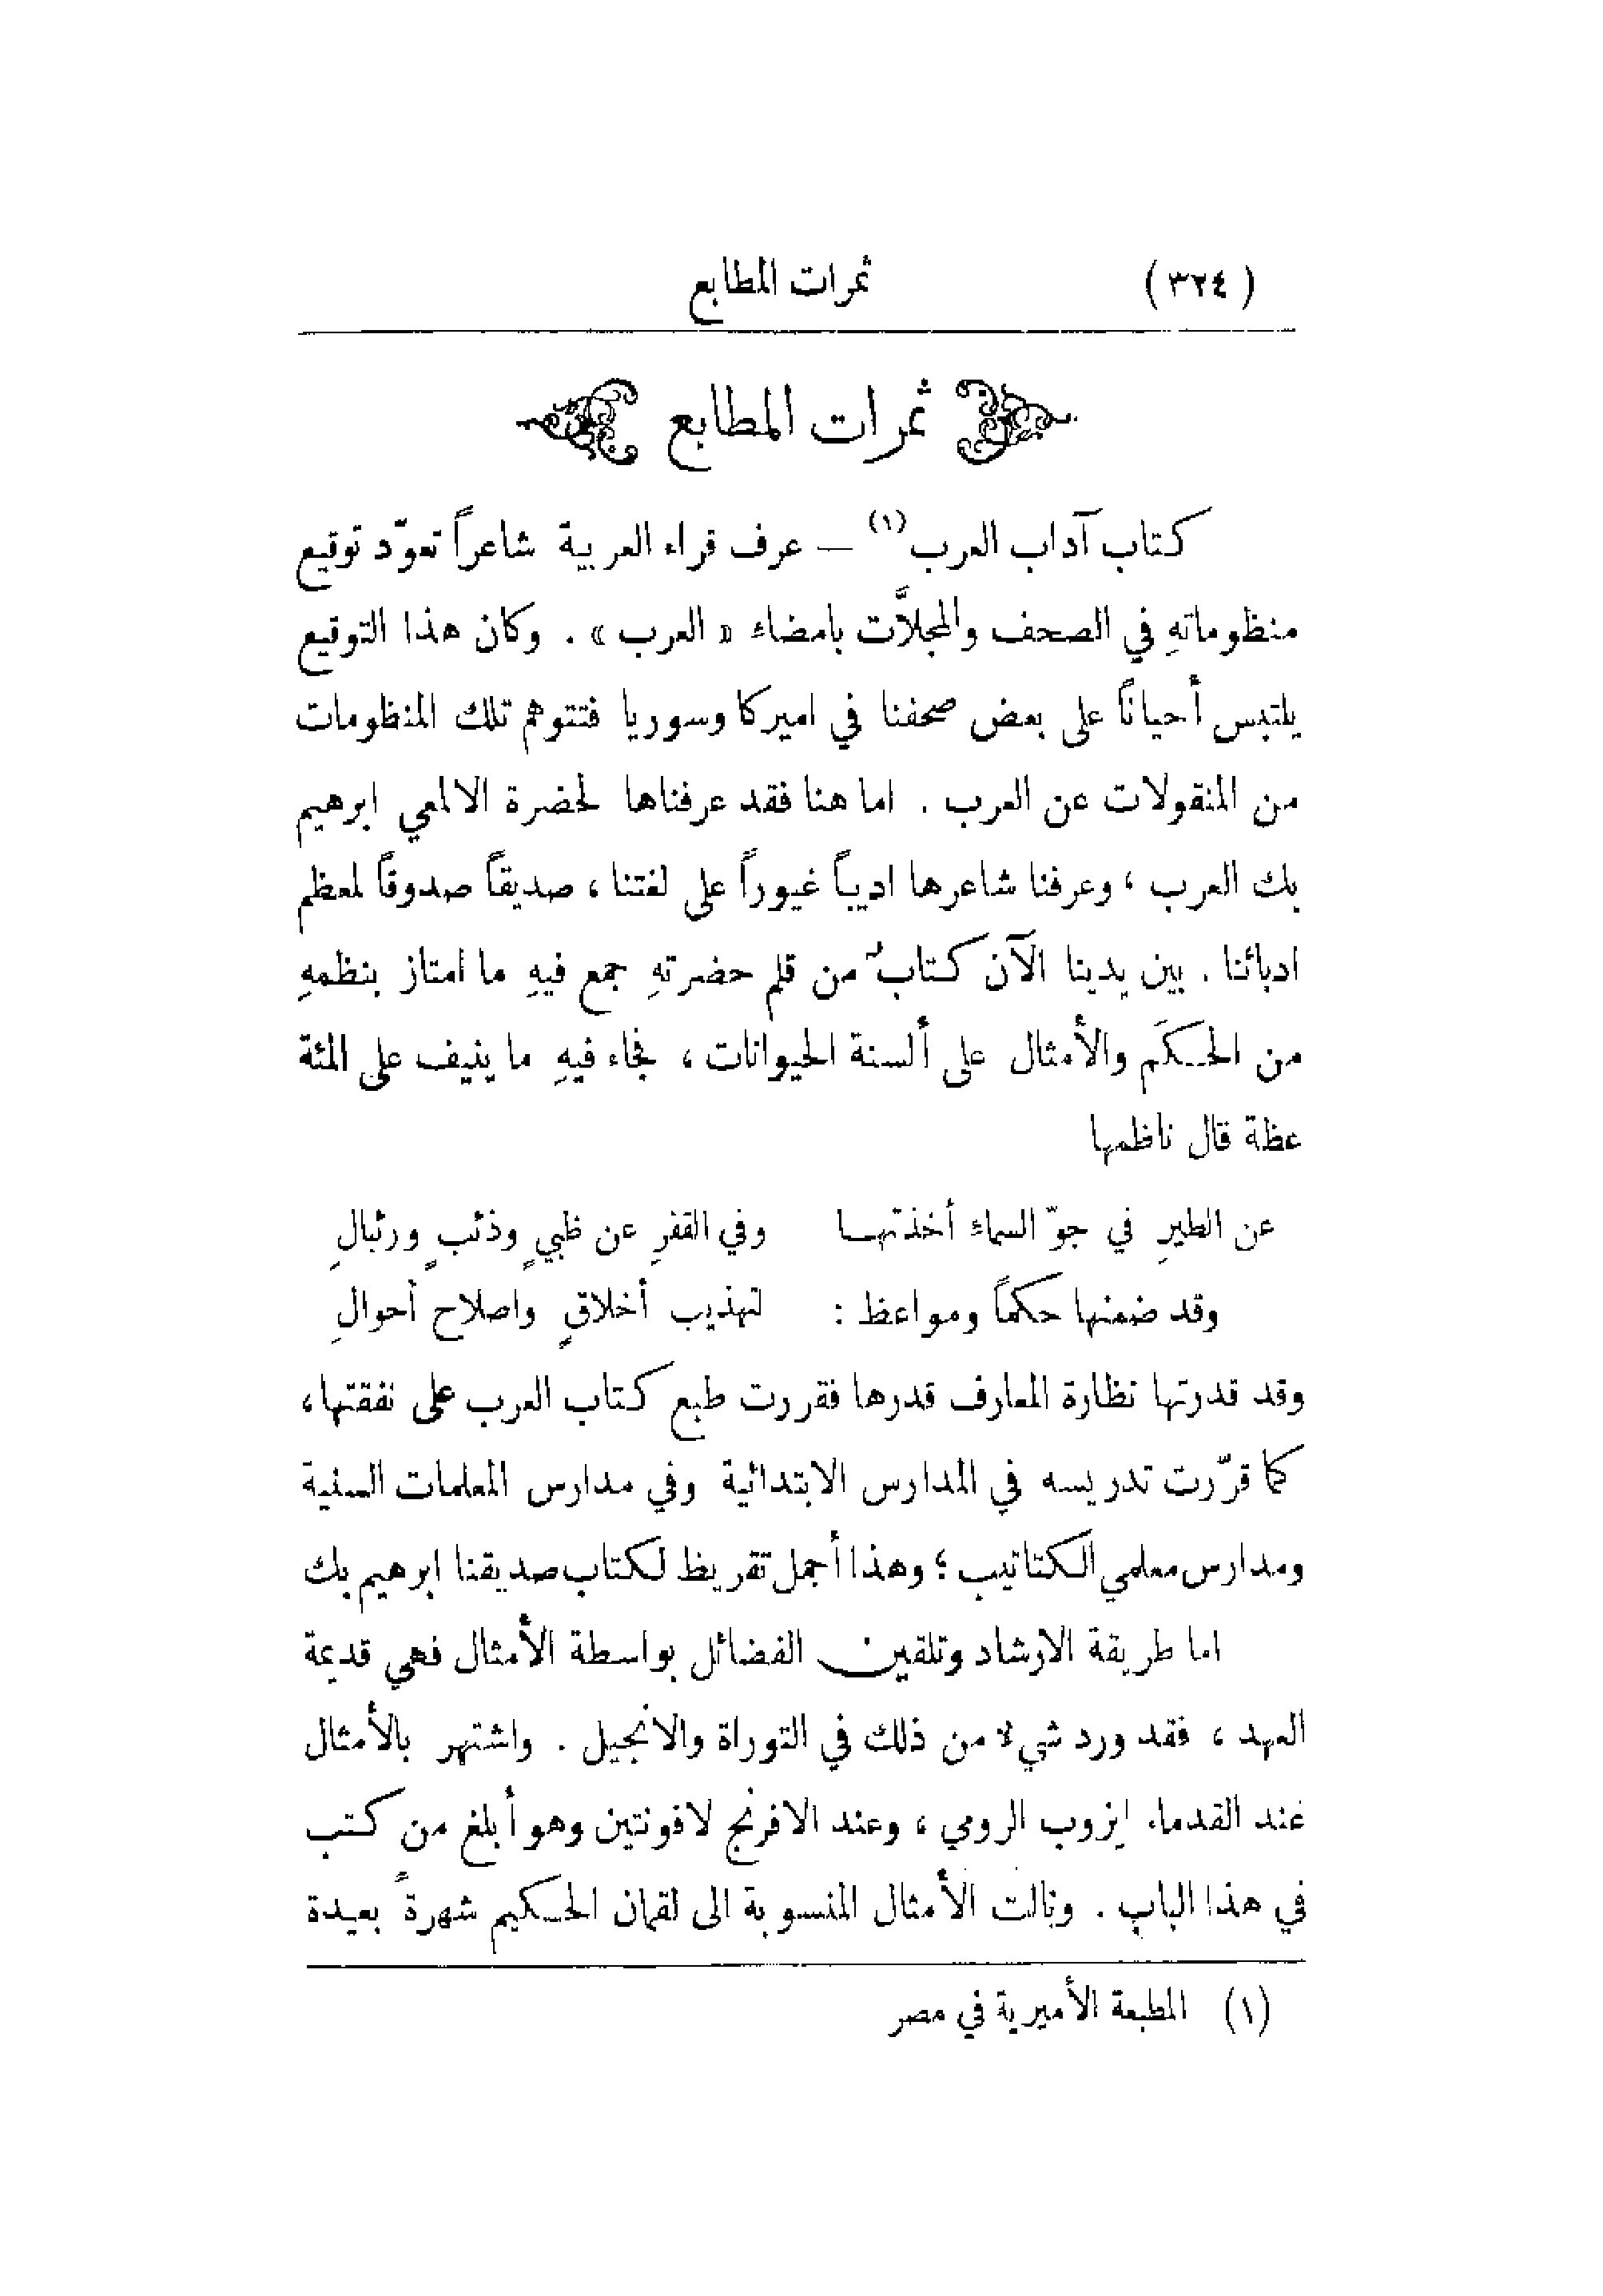 (٣٢٤) ثمرات المطابع
ثمرات المطابع
كتاب آداب العرب (١) — عرف قراء العربية شاعراً تعوّد توقيع
منظوماتهِ في الصحف والمجلاَّت بامضاء «العرب» . وكان هذا التوقيع
يلتبس أحياناً على بعض صحفنا في اميركا وسوريا فتتوهم تلك المنظومات
من المنقولات عن العرب . اما هنا فقد عرفناها لحضرة الالمعي ابرهيم
بك العرب ، وعرفنا شاعرها اديباً غيوراً على لغتنا ، صديقاً صدوقاً لمعظم
ادبائنا . بين يدينا الآن كتابٌ من قلم حضرتهِ جمع فيهِ ما امتاز بنظمهِ
من الحكَم والأمثال على ألسنة الحيوانات ، فجاء فيهِ ما ينيف على المئة
عظة قال ناظمها
عن الطيرِ في جوّ السماء أخذتهـا وفي القفرِ عن ظبيٍ وذئبٍ ورئبالِ
وقد ضمنها حكماً ومواعظ : لتهذيب أخلاقٍ واصلاح أحوالِ
وقد قدرتها نظارة المعارف قدرها فقررت طبع كتاب العرب على نفقتها ،
كما قرّرت تدريسه في المدارس الابتدائية وفي مدارس المعلمات السنية
ومدارس معلمي الكتاتيب ؛ وهذا أجمل تقريظ لكتاب صديقنا ابرهيم بك
اما طريقة الارشاد وتلقين الفضائل بواسطة الأمثال فهي قديمة
العهد ، فقد ورد شيءٌ من ذلك في التوراة والانجيل . واشتهر بالأمثال
عند القدماء ايزوب الرومي ، وعند الافرنج لافونتين وهو أبلغ من كتب
في هذا الباب . ونالت الأمثال المنسوبة الى لقمان الحكيم شهرةً بعيدة
(١) المطبعة الأميرية في مصر